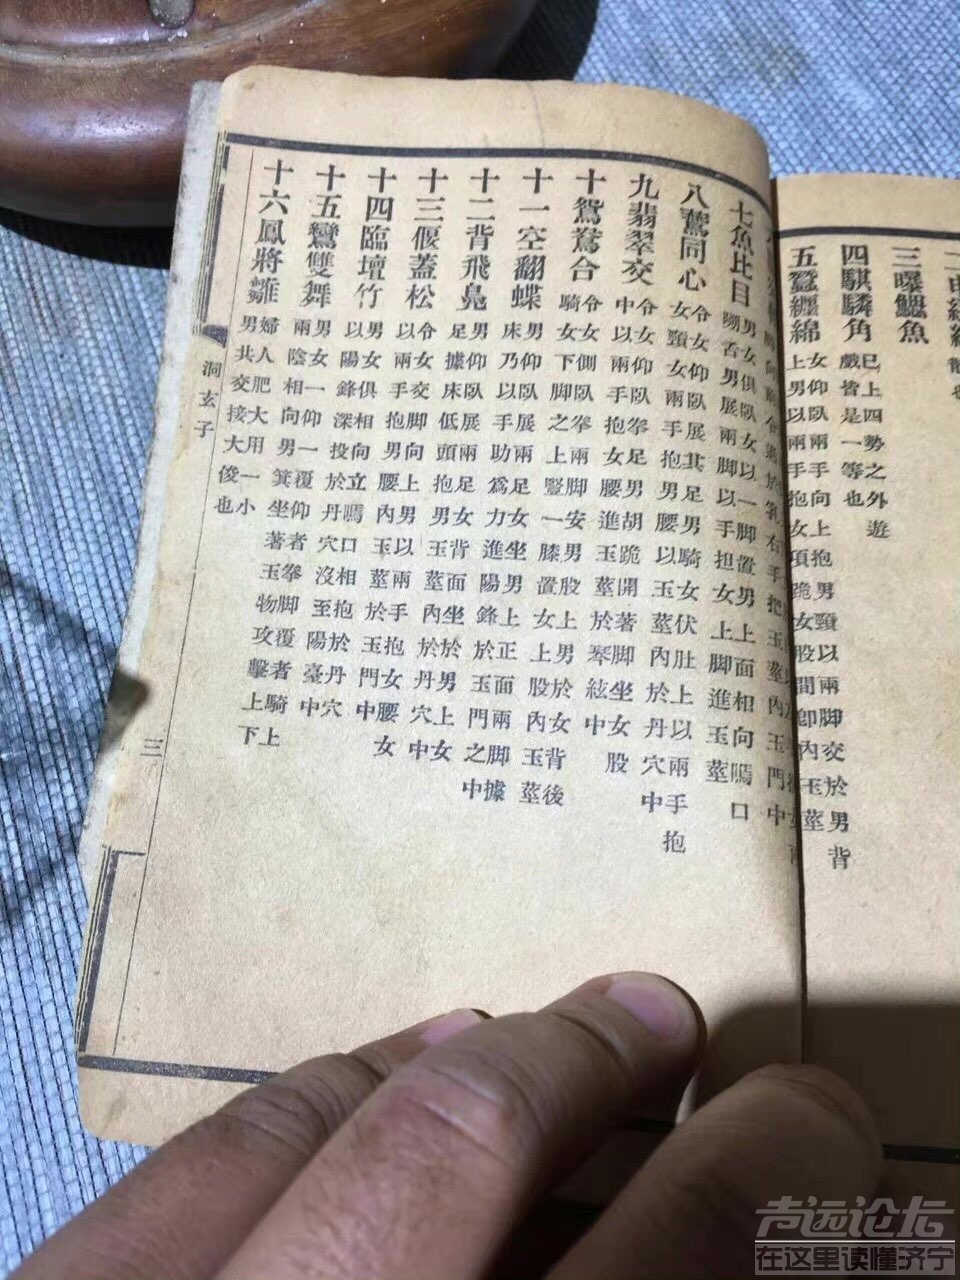 三曝鰓魚
四騏驎角
已上四勢之外遊
戲皆是一等也
五蠶纏綿
女仰臥兩手向上抱男頸以兩脚交於男背
上男以兩手抱女項跪女股間即內玉莖
七魚比目
男女俱臥女以一脚置男上面相向嗚口
嗍舌男展兩脚以一手担女上脚進玉莖
八鷰同心
令女仰臥展其足男騎女伏肚上以兩手抱
女頸女兩手抱男腰以玉莖內於丹穴中
九翡翠交
令女仰臥拳足男胡跪開著脚坐女股
中以兩手抱女腰進玉莖於琴絃中
十鴛鴦合
令女側臥拳兩脚安男股上男於女背後
騎女下脚之上豎一膝置女上股內玉莖
十一空翻蝶
男仰臥展兩足女坐男上正面兩脚據
床乃以手助為力進陽鋒於玉門之中
十二背飛鳧
男仰臥展兩足女背面坐於男上女
足據床低頭抱男玉莖內於丹穴中
十三偃蓋松
令女交脚向上男以兩手抱女腰女
以兩手抱男腰內玉莖於玉門中
十四臨壇竹
男女俱相向立嗚口相抱於丹穴
以陽鋒深投於丹穴沒至陽臺中
十五鸞雙舞
男女一仰一覆仰者拳脚覆者騎上
兩陰相向男箕坐著玉物攻擊上下
十六鳳將雛
婦人肥大用一小
男共交接大俊也
洞玄子
三
声远论坛
在这里读懂济宁